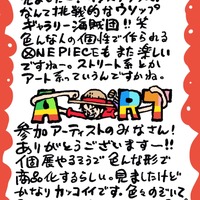 なんて挑戦的なウソップ
ギャラリー海賊団!! 笑
色んな人の個性で作られる
ONE PIECEもまた楽しい
ですねー。ストリート系とか
アート系っていうんですかね。
ART
参加アーティストのみなさん!
ありがとうございますー!!
個展やるろうで色んな形で
商品化するらしい。見ましたけど
かなりカッコイイです。色々のぞいて